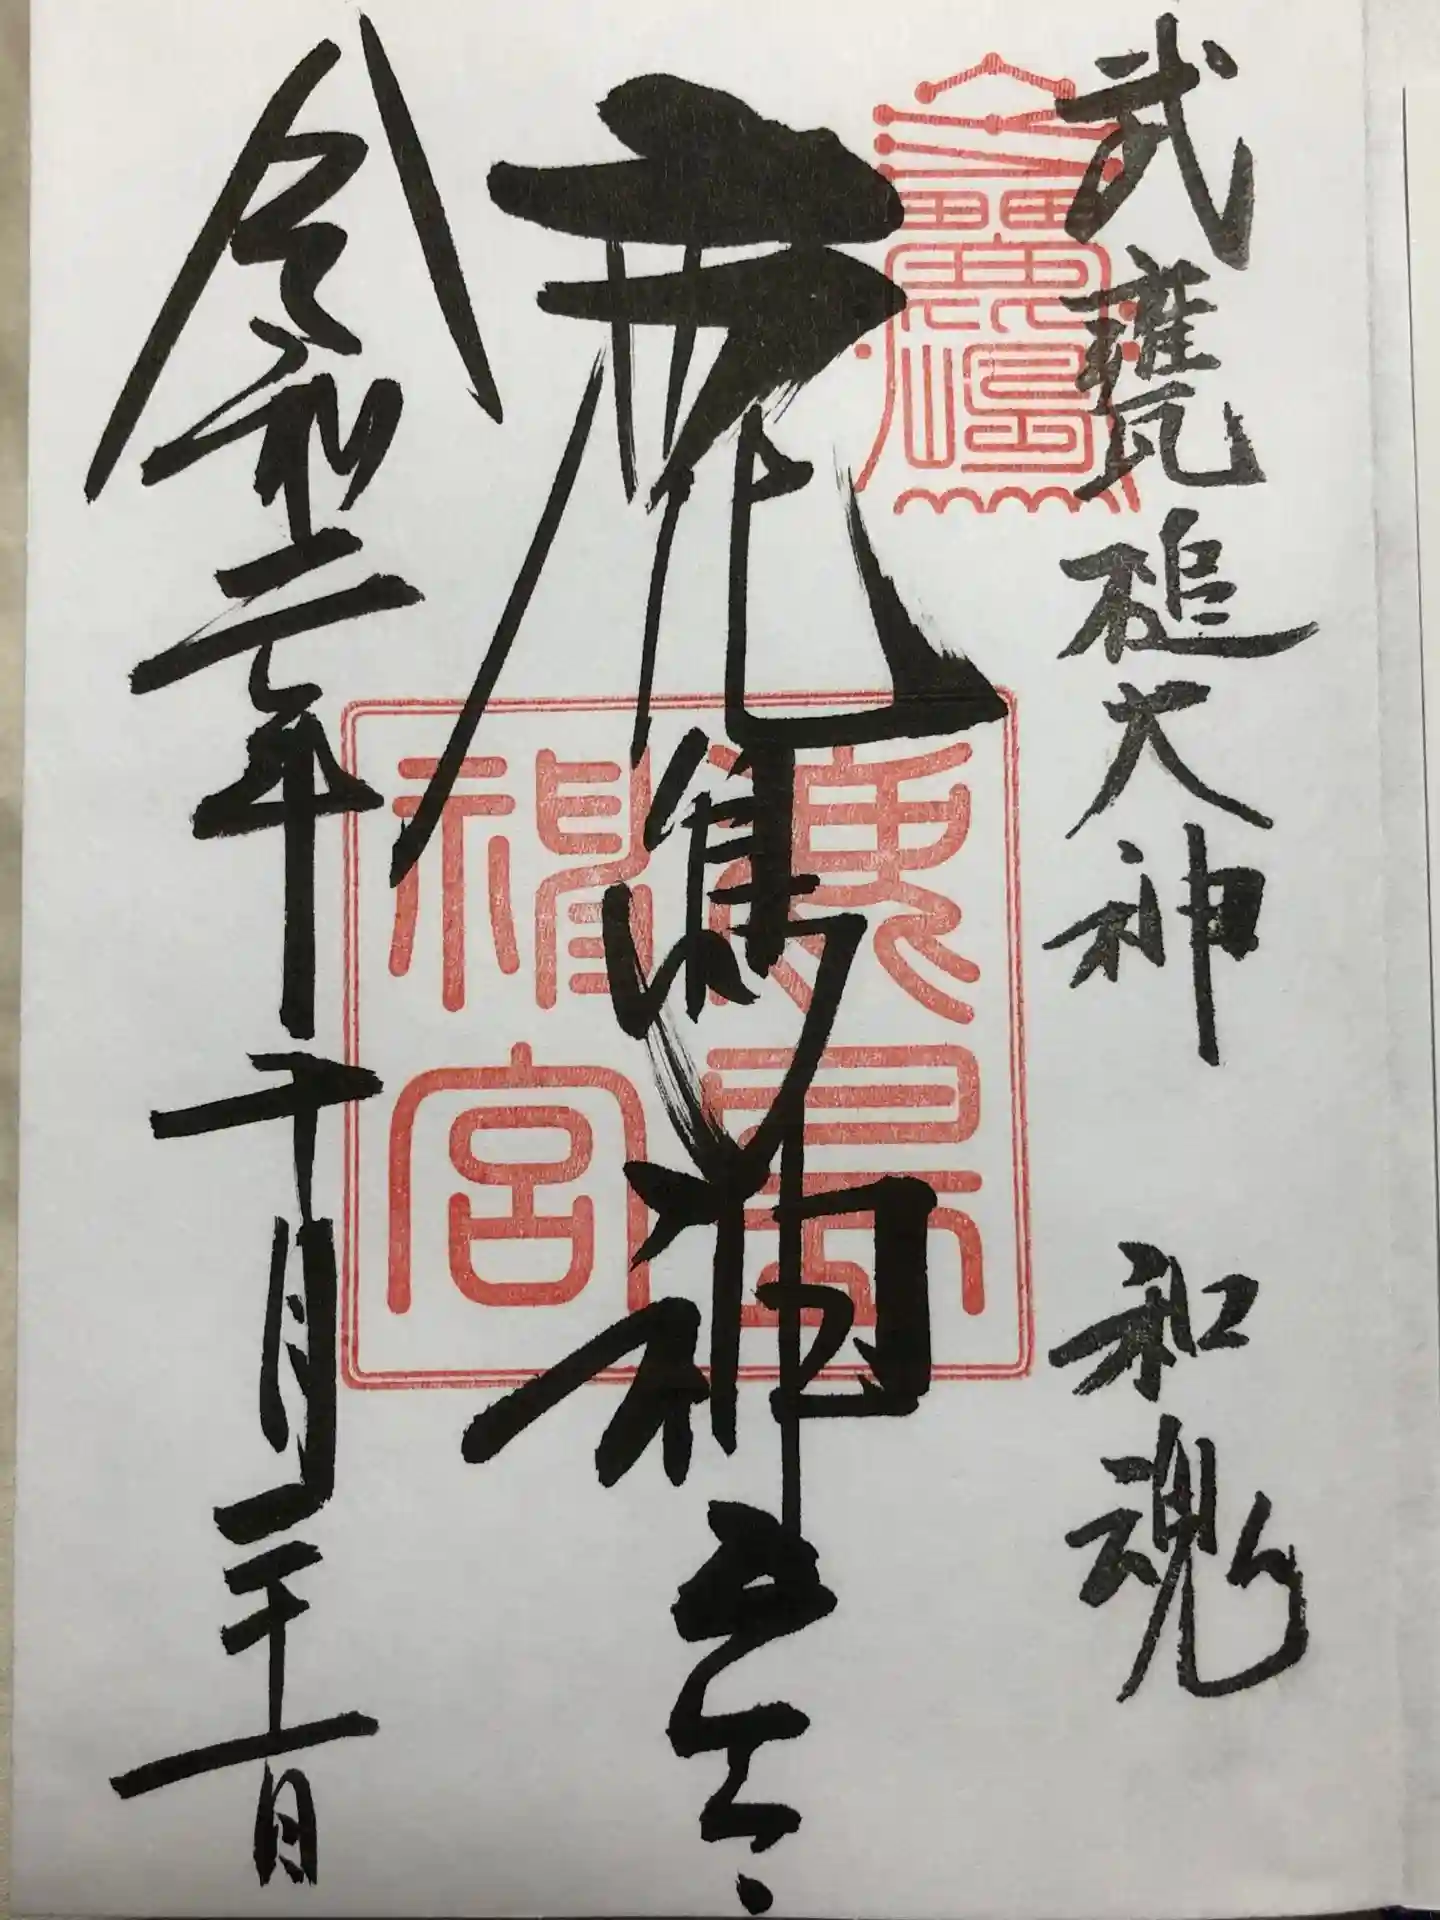 武甕槌大神　和魂
鹿島神宮
令和二年十月二十一日
鹿島神宮